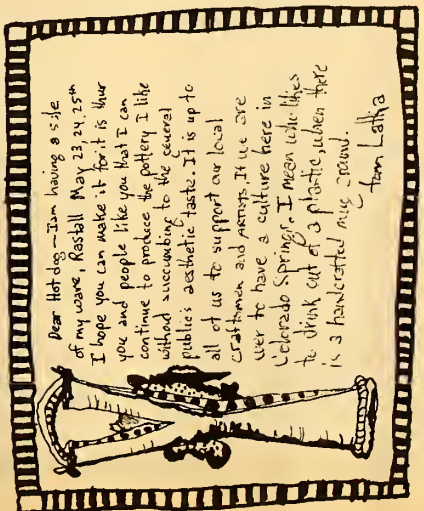 Dear Hot dog—I am having a sale
of my ware, Rastall May 23, 24, 25th
I hope you can make it for it is thur
you and people like you that I can
continue to produce the pottery I like
without succumbing to the general
public's aesthetic taste. It is up to
all of us to support our local
Craftsmen and Artists If we are
ever to have a culture here in
Colorado Springs. I mean who likes
to drink out of a plastic, when there
is a handcrafted mug around.
Tom Latka